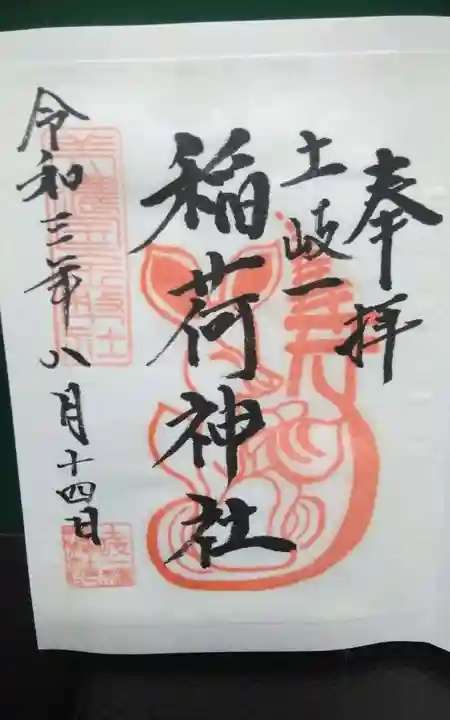 奉拝
土岐一
稲荷神社
令和三年八月十四日